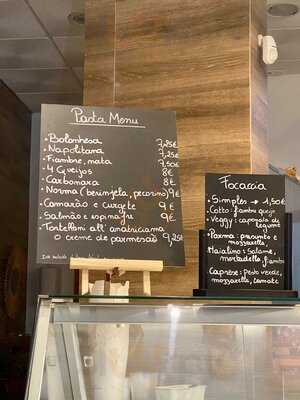 Pasta Menu
• Bolonhesa 7,25€
• Napolitana 7,25€
• Fiambre, nata 7,50€
• 4 Queijos 8€
• Carbonara 8€
• Norma (berinjela, pecorino) 9€
• Camarão e curgete 9€
• Salmão e espinafre 9€
• Tortelloni all' amatriciana
o creme de parmesão 9,25
Focaccia
• Simples → 1,50€
• Cotto: fiambre queijo
• Veggy: caponata de
legume
• Parma: presunto e
mozzarella
• Maialino: salame,
mortadella, fiambre
• Caprese: pesto verde,
mozzarella, tomate